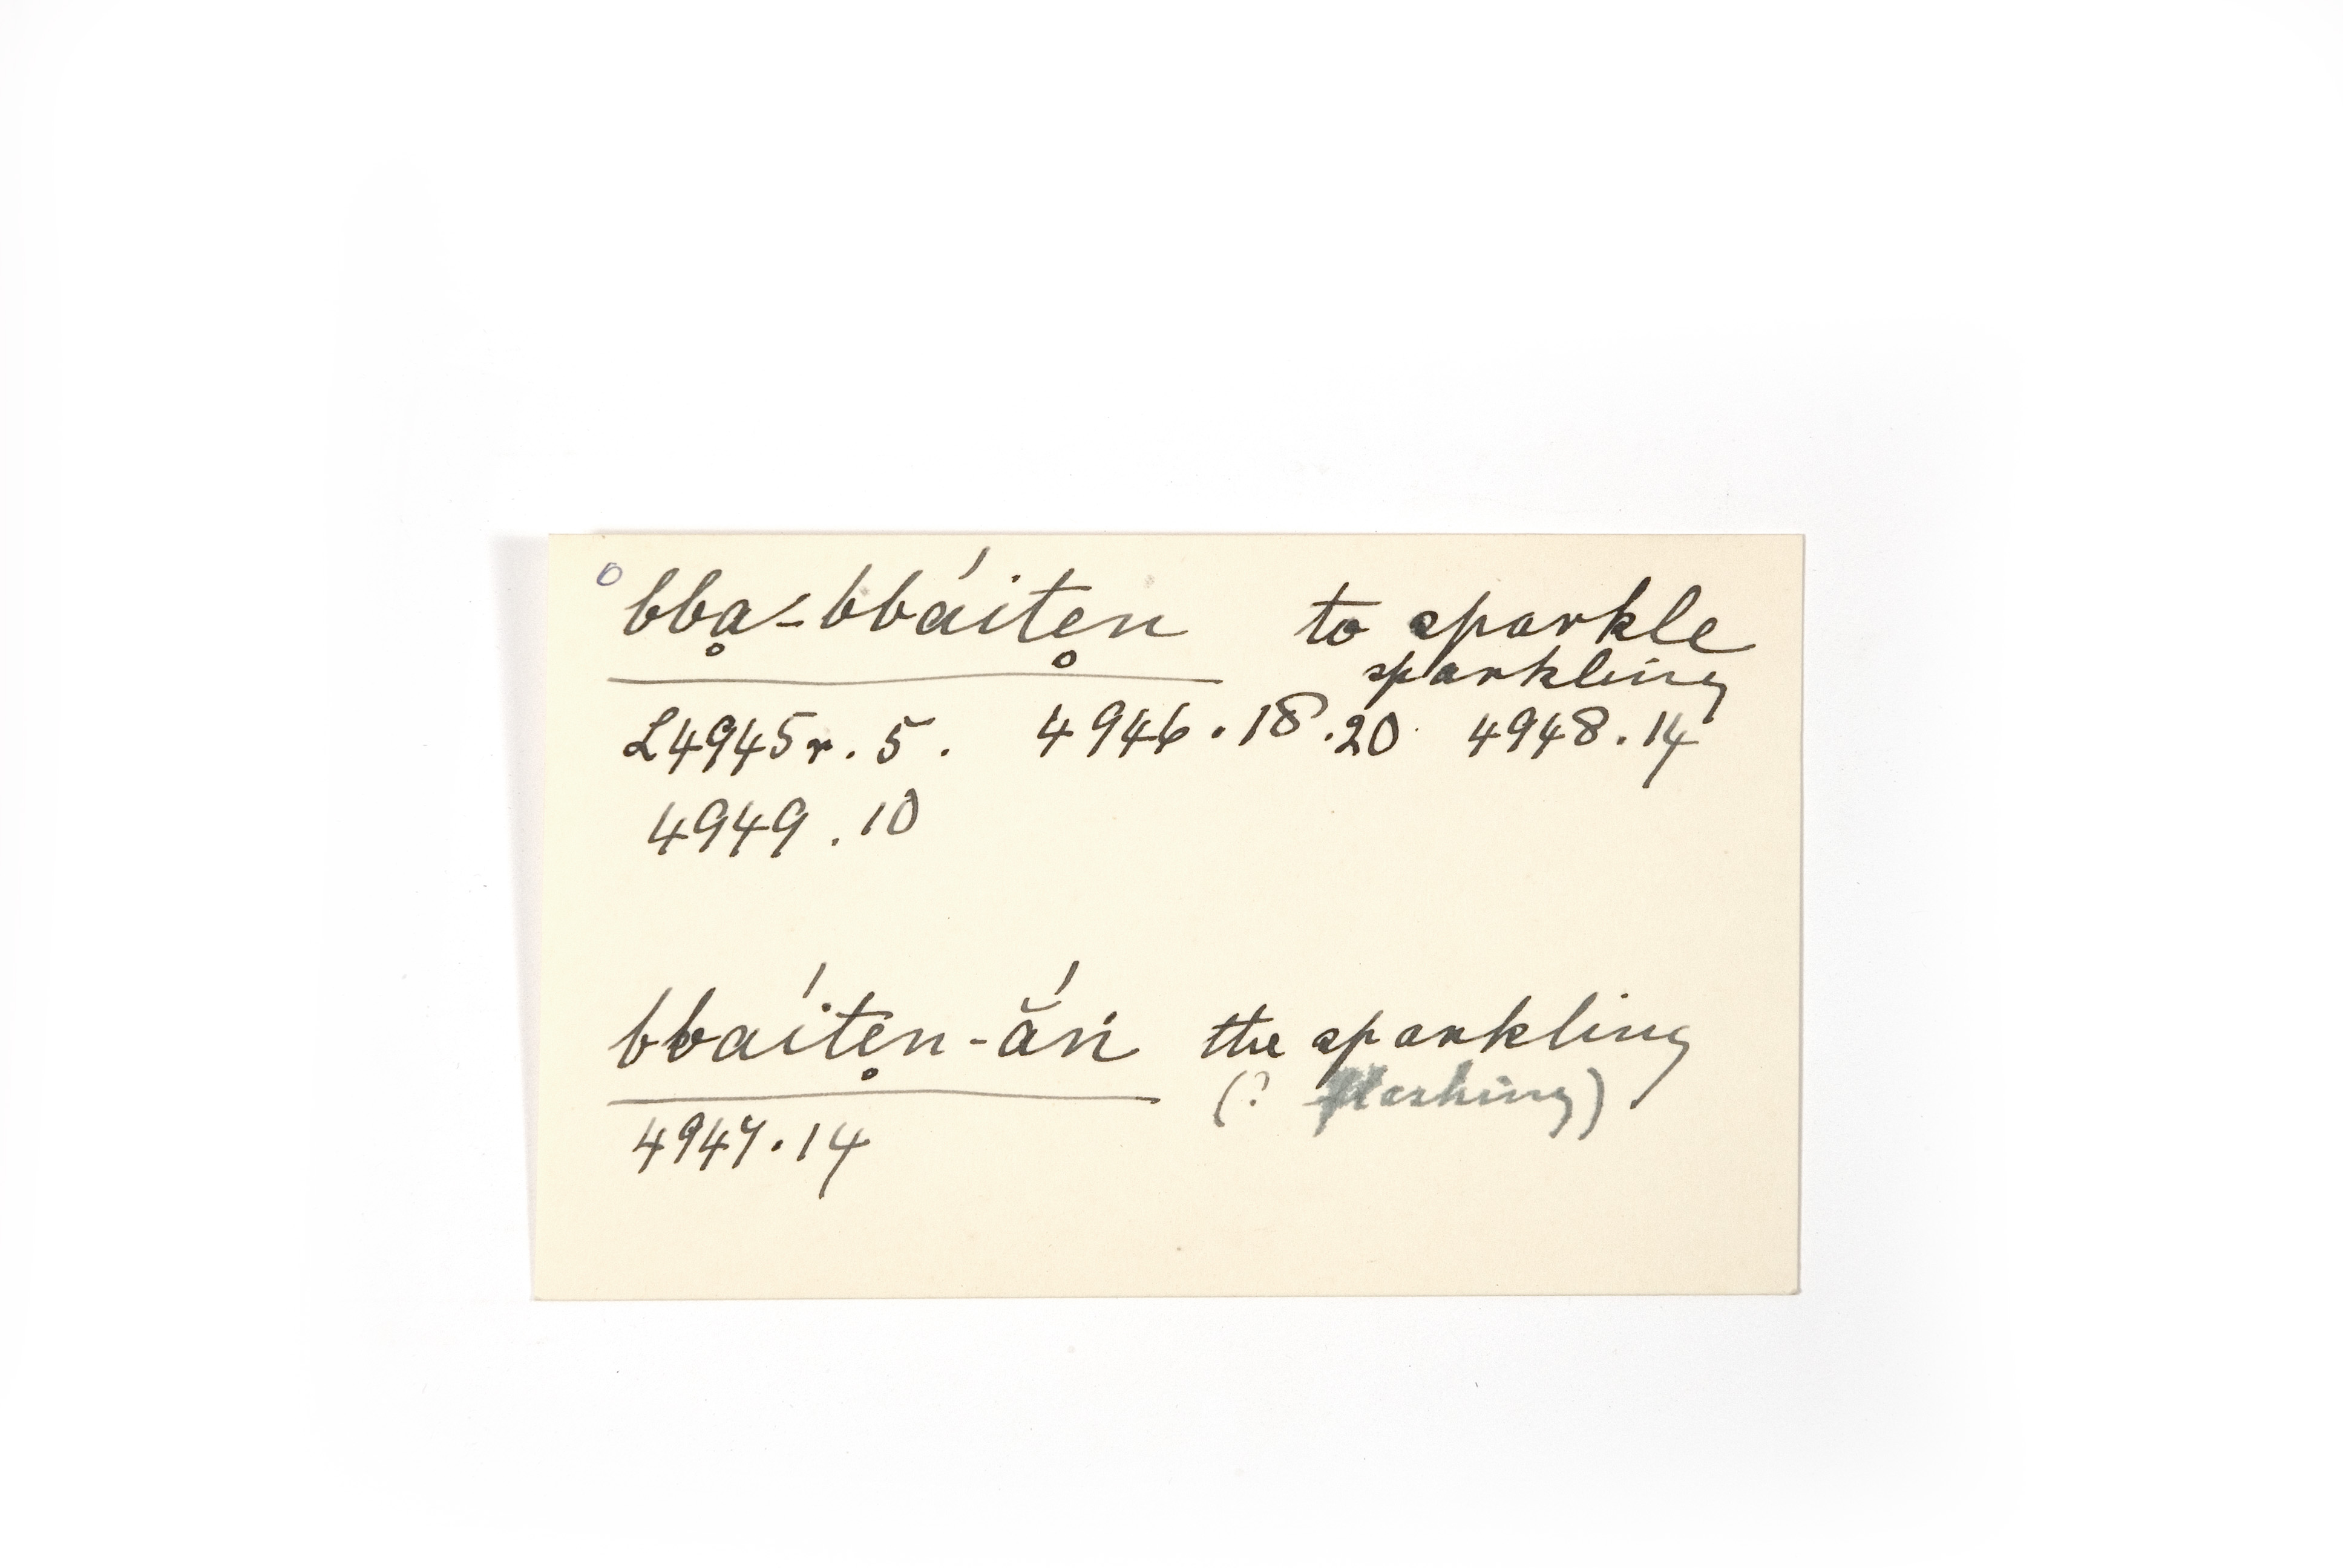 bbḁ-bbáite̥n to sparkle
sparkling
L4945r.5. 4946.18.20 4948.14
4949.10
bbáite̥n-ắṅ the sparkling
(? flashing)
4947.14